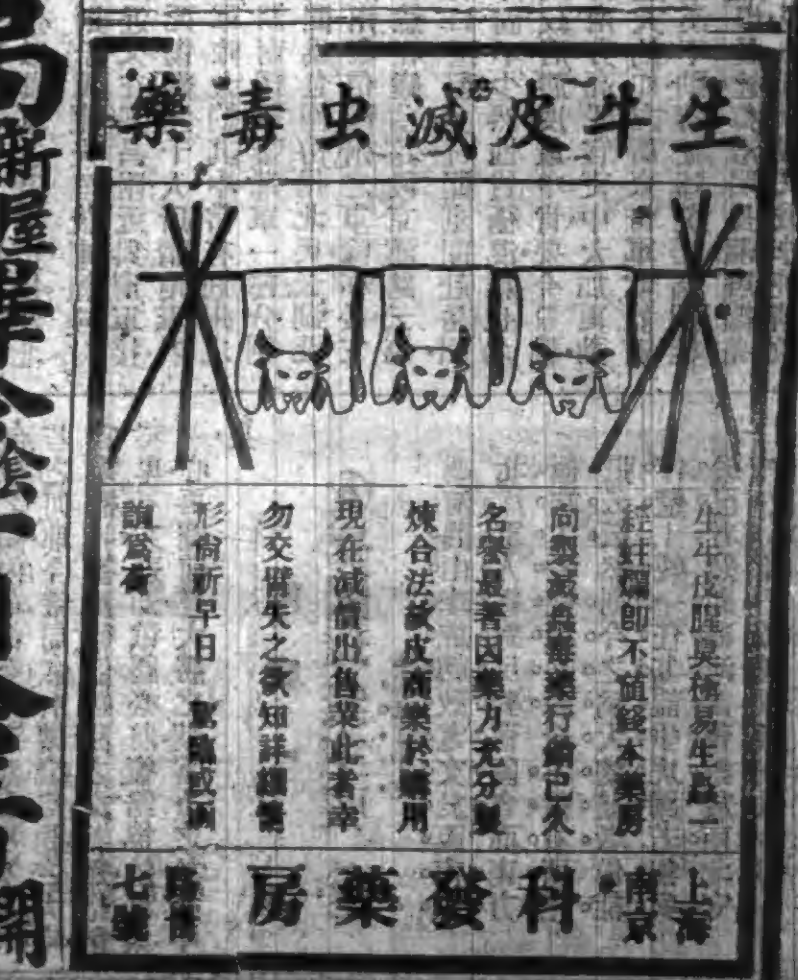 生牛皮滅虫毒藥
生牛皮腥臭極易生蟲一
經蛀爛即不值錢本藥房
向製滅蟲毒藥行銷已久
名譽最著因藥力充分製
煉合法故皮商樂於購用
現在減價出售業此者幸
勿交臂失之欲知詳細情
形尚祈早日 駕臨或函
詢爲荷
上海
南京
科發藥房
路西
七號
局新屋